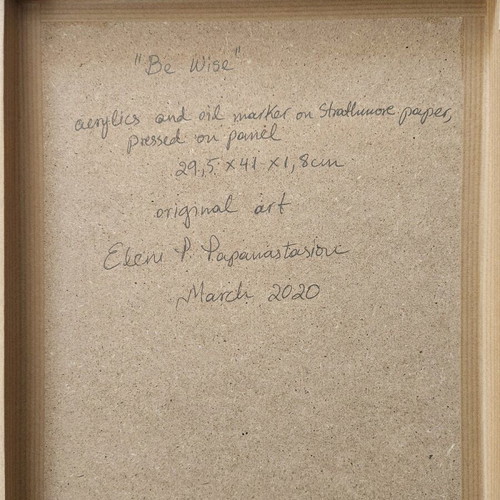 "Be Wise"
acrylics and oil marker on Strathmore paper,
pressed on panel
29,5 x 41 x 1,8cm
original art
Eleni P. Papanastasiou
March 2020